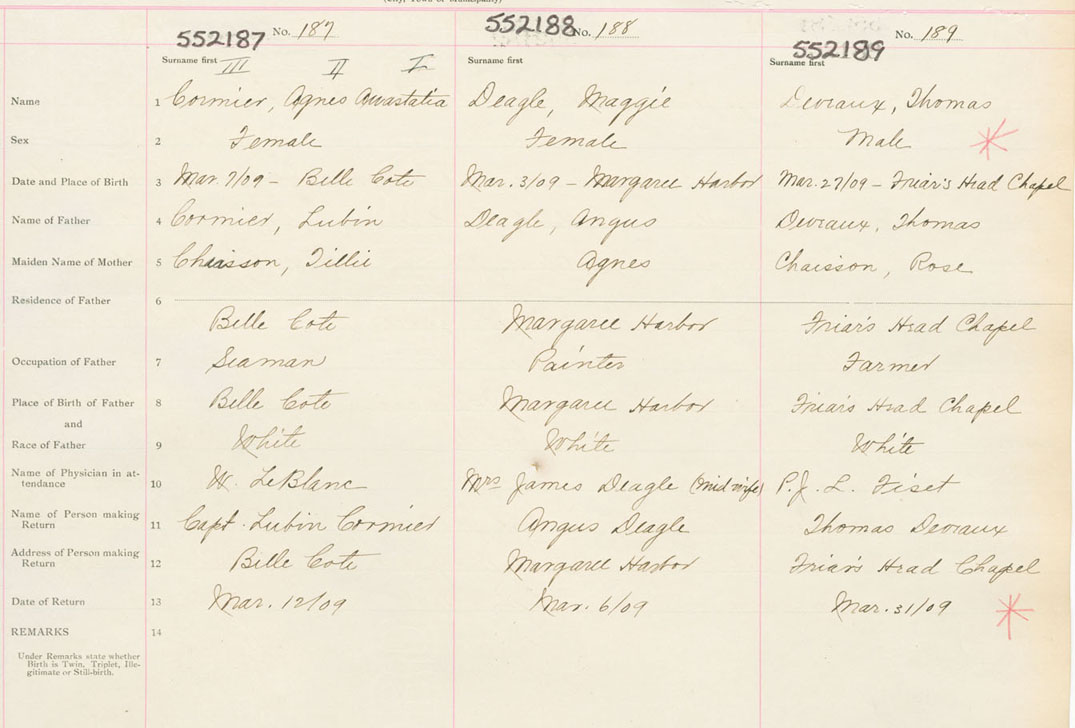 (City, Town or Municipality)
552187 No. 187 552188 No. 188 552189 No. 189
Surname first Surname first Surname first
III II I
Name 1 Cormier, Agnes Anastatia Deagle, Maggie Devraux, Thomas
Sex 2 Female Female Male
Date and Place of Birth 3 Mar. 7/09 - Belle Cote Mar. 3/09 - Margaree Harbor Mar. 27/09 - Friar's Head Chapel
Name of Father 4 Cormier, Lubin Deagle, Angus Devraux, Thomas
Maiden Name of Mother 5 Chiasson, Tillie Agnes Chaisson, Rose
Residence of Father 6
Belle Cote Margaree Harbor Friar's Head Chapel
Occupation of Father 7 Seaman Painter Farmer
Place of Birth of Father 8 Belle Cote Margaree Harbor Friar's Head Chapel
and
Race of Father 9 White White White
Name of Physician in at-
tendance 10 W. LeBlanc Mrs James Deagle (midwife) P.J. L. Fiset
Name of Person making
Return 11 Capt. Lubin Cormier Angus Deagle Thomas Devraux
Address of Person making
Return 12 Belle Cote Margaree Harbor Friar's Head Chapel
Date of Return 13 Mar. 12/09 Mar. 6/09 Mar. 31/09
REMARKS 14
Under Remarks state whether
Birth is Twin, Triplet, Ille-
gitimate or Still-birth.